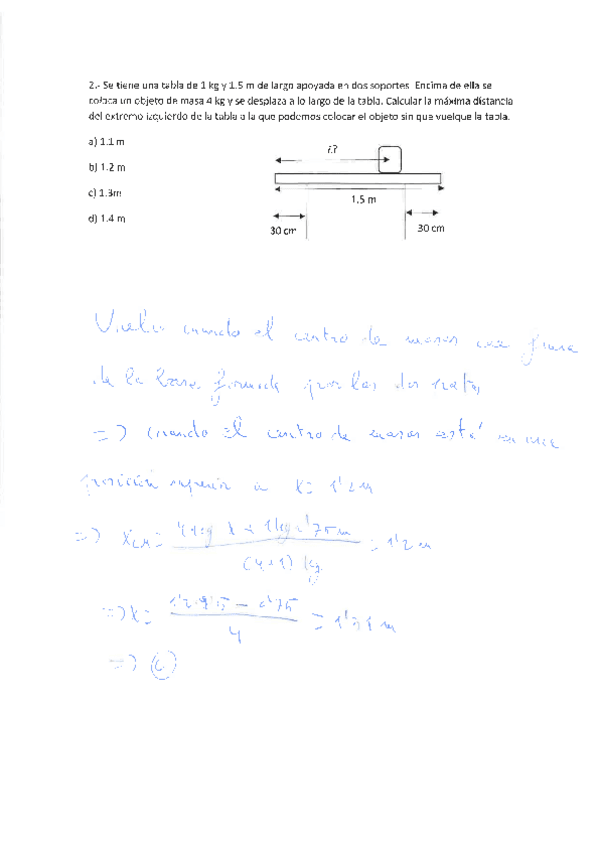 2.- Se tiene una tabla de 1 kg y 1.5 m de largo apoyada en dos soportes. Encima de ella se
coloca un objeto de masa 4 kg y se desplaza a lo largo de la tabla. Calcular la máxima distancia
del extremo izquierdo de la tabla a la que podemos colocar el objeto sin que vuelque la tabla.
a) 1.1 m
¿?
b) 1.2 m
c) 1.3m
1.5 m
d) 1.4 m
30 cm
30 cm
Vuelca cuando el centro de masas cae fuera
de la base formada por las dos patas
=> cuando el centro de masas está en una
posición superior a x = 1'2 m
=> x_CM = (4 kg x + 1 kg 0'75 m) / ((4+1) kg) = 1'2 m
=> x = (1'2 · 5 - 0'75) / 4 = 1'31 m
=> (c)